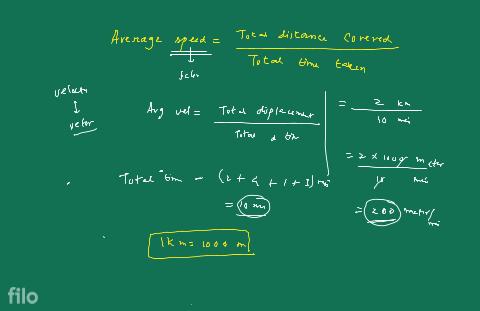 Average speed = Total distance covered / Total time taken
velocity
vector
Avg vel = Total displacement / Total
= 2 km / 10 min
= 2 x 1000 meter / 10 min
Total tim - (2 + 4 + 1 + 3) min
= 10 min
= 200 meter/
1 km = 1000 m
filo